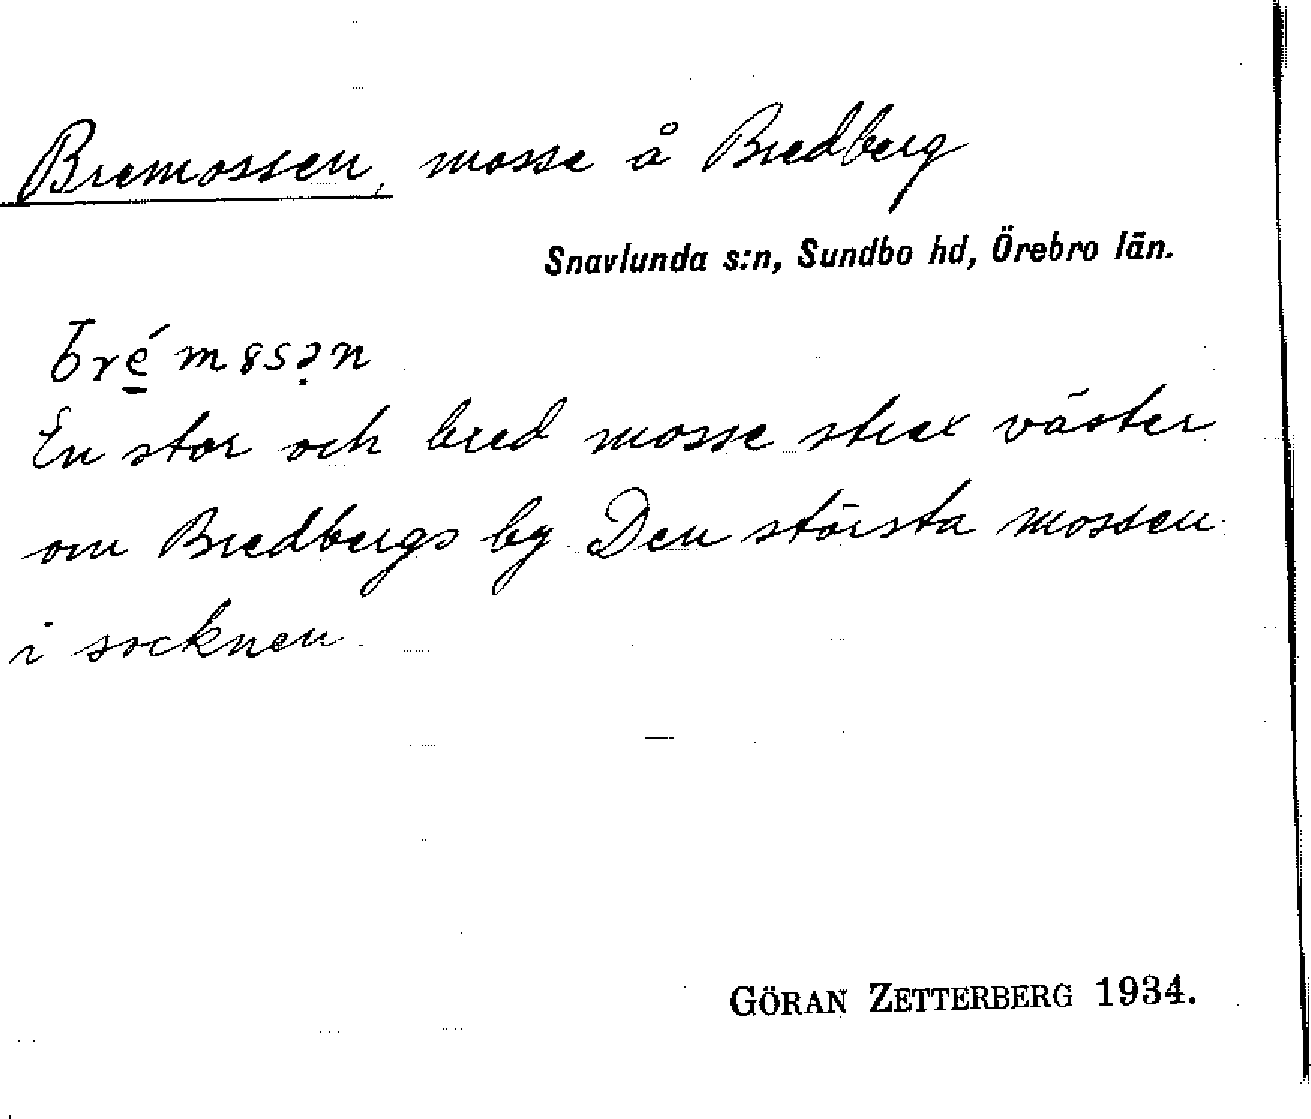 Bremossen, mosse å Bredberg
Snavlunda s:n, Sundbo hd, Örebro län.
bre̱ ́m8sə̣n
En stor och bred mosse strax väster
om Bredbergs by Den största mossen
i socknen
GÖRAN ZETTERBERG 1934.